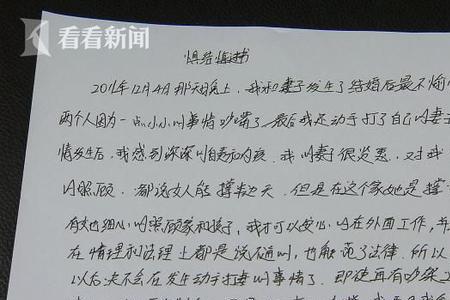 看看新闻
悔过书
2011年12月4日那天晚上，我和妻子发生了结婚后最不愉
两个人因为一点小小的事情吵嘴了，最后我还动手打了自己的妻
情发生后，我感到深深的自责和内疚。我的妻子很贤惠，对我
的照顾，都说女人能撑半边天，但是在这个家她是撑
有她细心的照顾家和孩子，我才可以安心的在外面工作，并
在情理和法理上都是说不通的，也触犯了法律。所以
以后决不会在发生动手打妻的事情了，即使再有吵架